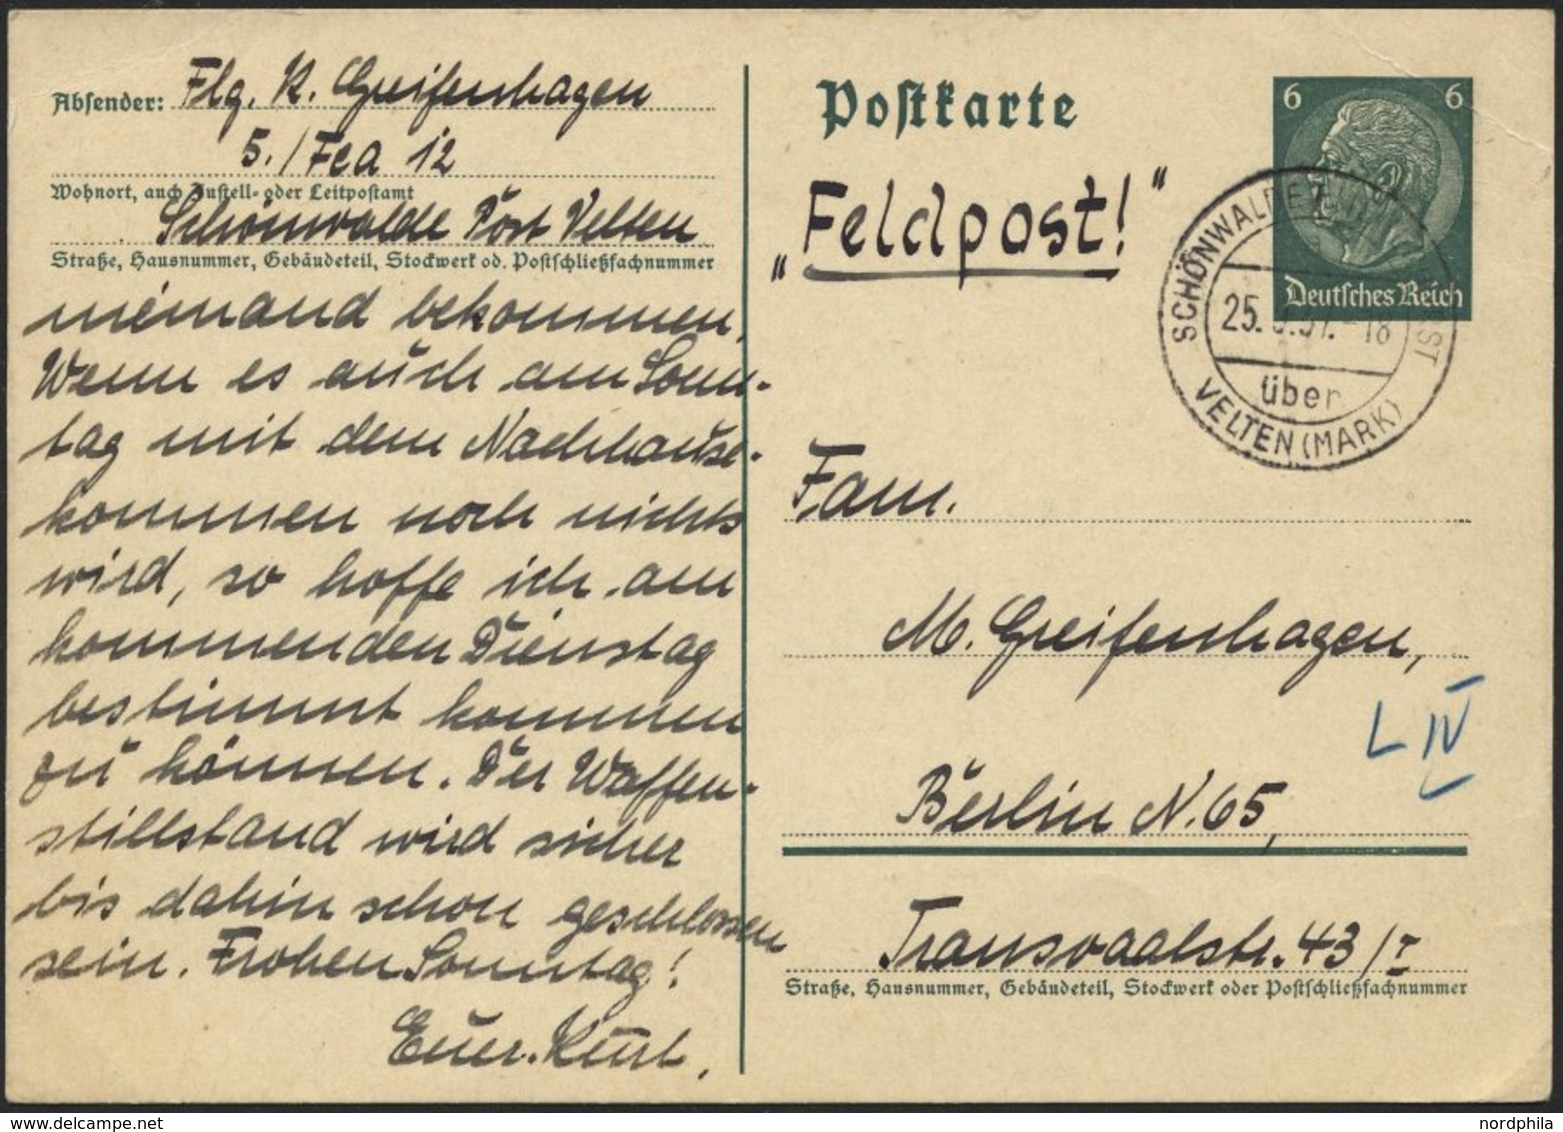 Absender: Flg. K. Greifenhagen
5./Fea 12
Wohnort, auch Zustell- oder Leitpostamt
Schönwalde Post Velten
Straße, Hausnummer, Gebäudeteil, Stockwerk od. Postschließfachnummer
niemand bekommen.
Wenn es auch am Sonn-
tag mit dem Nachhause-
kommen noch nichts
wird, so hoffe ich am
kommenden Dienstag
bestimmt kommen
zu können. Der Waffen-
stillstand wird sicher
bis dahin schon geschlossen
sein. Frohen Sonntag!
Euer Kurt.
Postkarte
„Feldpost!“
6 6
Deutsches Reich
SCHÖNWALDE
25. 18
über
VELTEN (MARK)
Fam.
M. Greifenhagen,
L IV
Berlin N. 65,
Transvaalstr. 43/I
Straße, Hausnummer, Gebäudeteil, Stockwerk oder Postschließfachnummer
nordphila